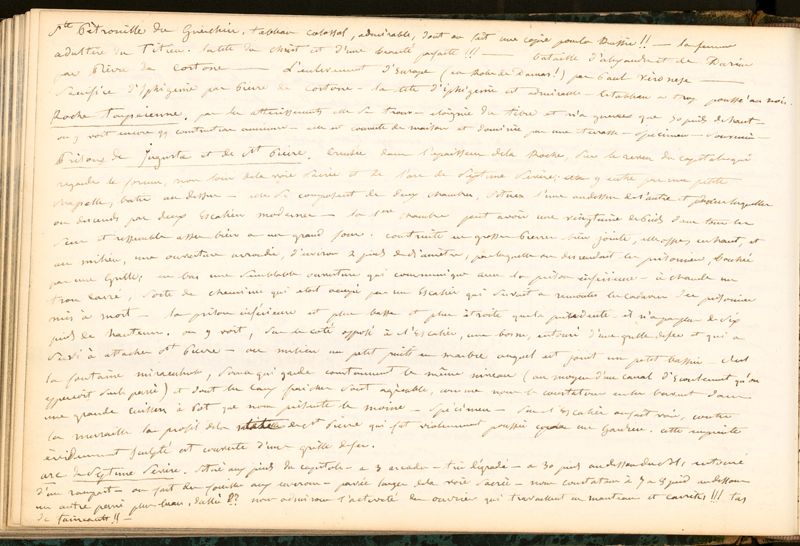 Ste Pétronille du Guerchin. tableau colossal, admirable, dont on fait une copie pour la Russie!! — la femme
adultère du Titien. la tête du Christ est d'une beauté parfaite!!! — bataille d'alexandre et de Darius
par Pietre de Cortone — L'enlèvement d'Europe (en Robe de Damas!) par Paul Veronese —
Sacrifice d'Iphigénie par Pietre de Cortone — la tête d'iphigénie est admirable — le tableau a trop poussé au noir.
Roche tarpéienne. par les atterrissements elle se trouve éloignée du tibre et n'a guères que 30 pieds de haut —
on y voit encore qq construction — elle est couverte de maisons et dominée par une terrasse — Spécimen — Souvenir
Prisons de Jugurta et de St Pierre. Creusées dans l'épaisseur de la Roche, sur le revers du capitole qui
regarde le forum, non loin de la voie Sacrée et de l'arc de Septime Sévère; on y entre par une petite
chapelle, bâtie au dessus — elle se compose de deux chambres, situées l'une au dessus de l'autre et dans lesquelles
on descend par deux Escaliers modernes — la 1ere chambre peut avoir une vingtaine de pieds dans tous les
sens et ressemble assez bien à un grand four. construite en grosses pierres bien jointes, elle a en haut et
au milieu, une ouverture arrondie, d'environ 2 pieds de diamètre, par laquelle on descendait les prisonniers, bouchée
par une Grille; en bas une semblable ouverture qui communique avec la prison inférieure — à chaude un
trou carré, sorte de cheminée qui était occupé par un Escalier qui servait à remonter les cadavres des prisonniers
mis à mort — la prison inférieure est plus basse et plus étroite que la précédente et n'a pas plus de six
pieds de hauteur. on y voit, sur le coté opposé à l'Escalier, une borne, entourée d'une grille de fer et qui a
servi à attacher St Pierre — au milieu un petit puits en marbre auquel est joint un petit bassin — c'est
la fontaine miraculeuse, source qui garde constamment le même niveau (au moyen d'un canal d'écoulement qu'on
apperçoit sur la paroi) et dont les eaux fraîches sont agréables, comme nous le constatons en les buvant dans
une grande cuiller à Pot que nous présente le moine — Spécimen — sur l'Escalier on fait voir, contre
la muraille le profil de la tête de St Pierre qui fut violemment poussé par un Gardien. cette empreinte
évidemment sculptée est couverte d'une grille de fer.
arc de Septime Sévère. situé aux pieds du capitole — a 3 arcades — très dégradé — a 30 pieds au dessous du sol, entouré
d'un rempart — on fait des fouilles aux environs — pavés larges de la voie Sacrée — nous constatons à 7 a 8 pieds au dessous
un autre pavé plus beau, dallé?? nous admirons l'activité des ouvriers qui travaillent en manteaux et carricks!!! tas
de faineants!! —